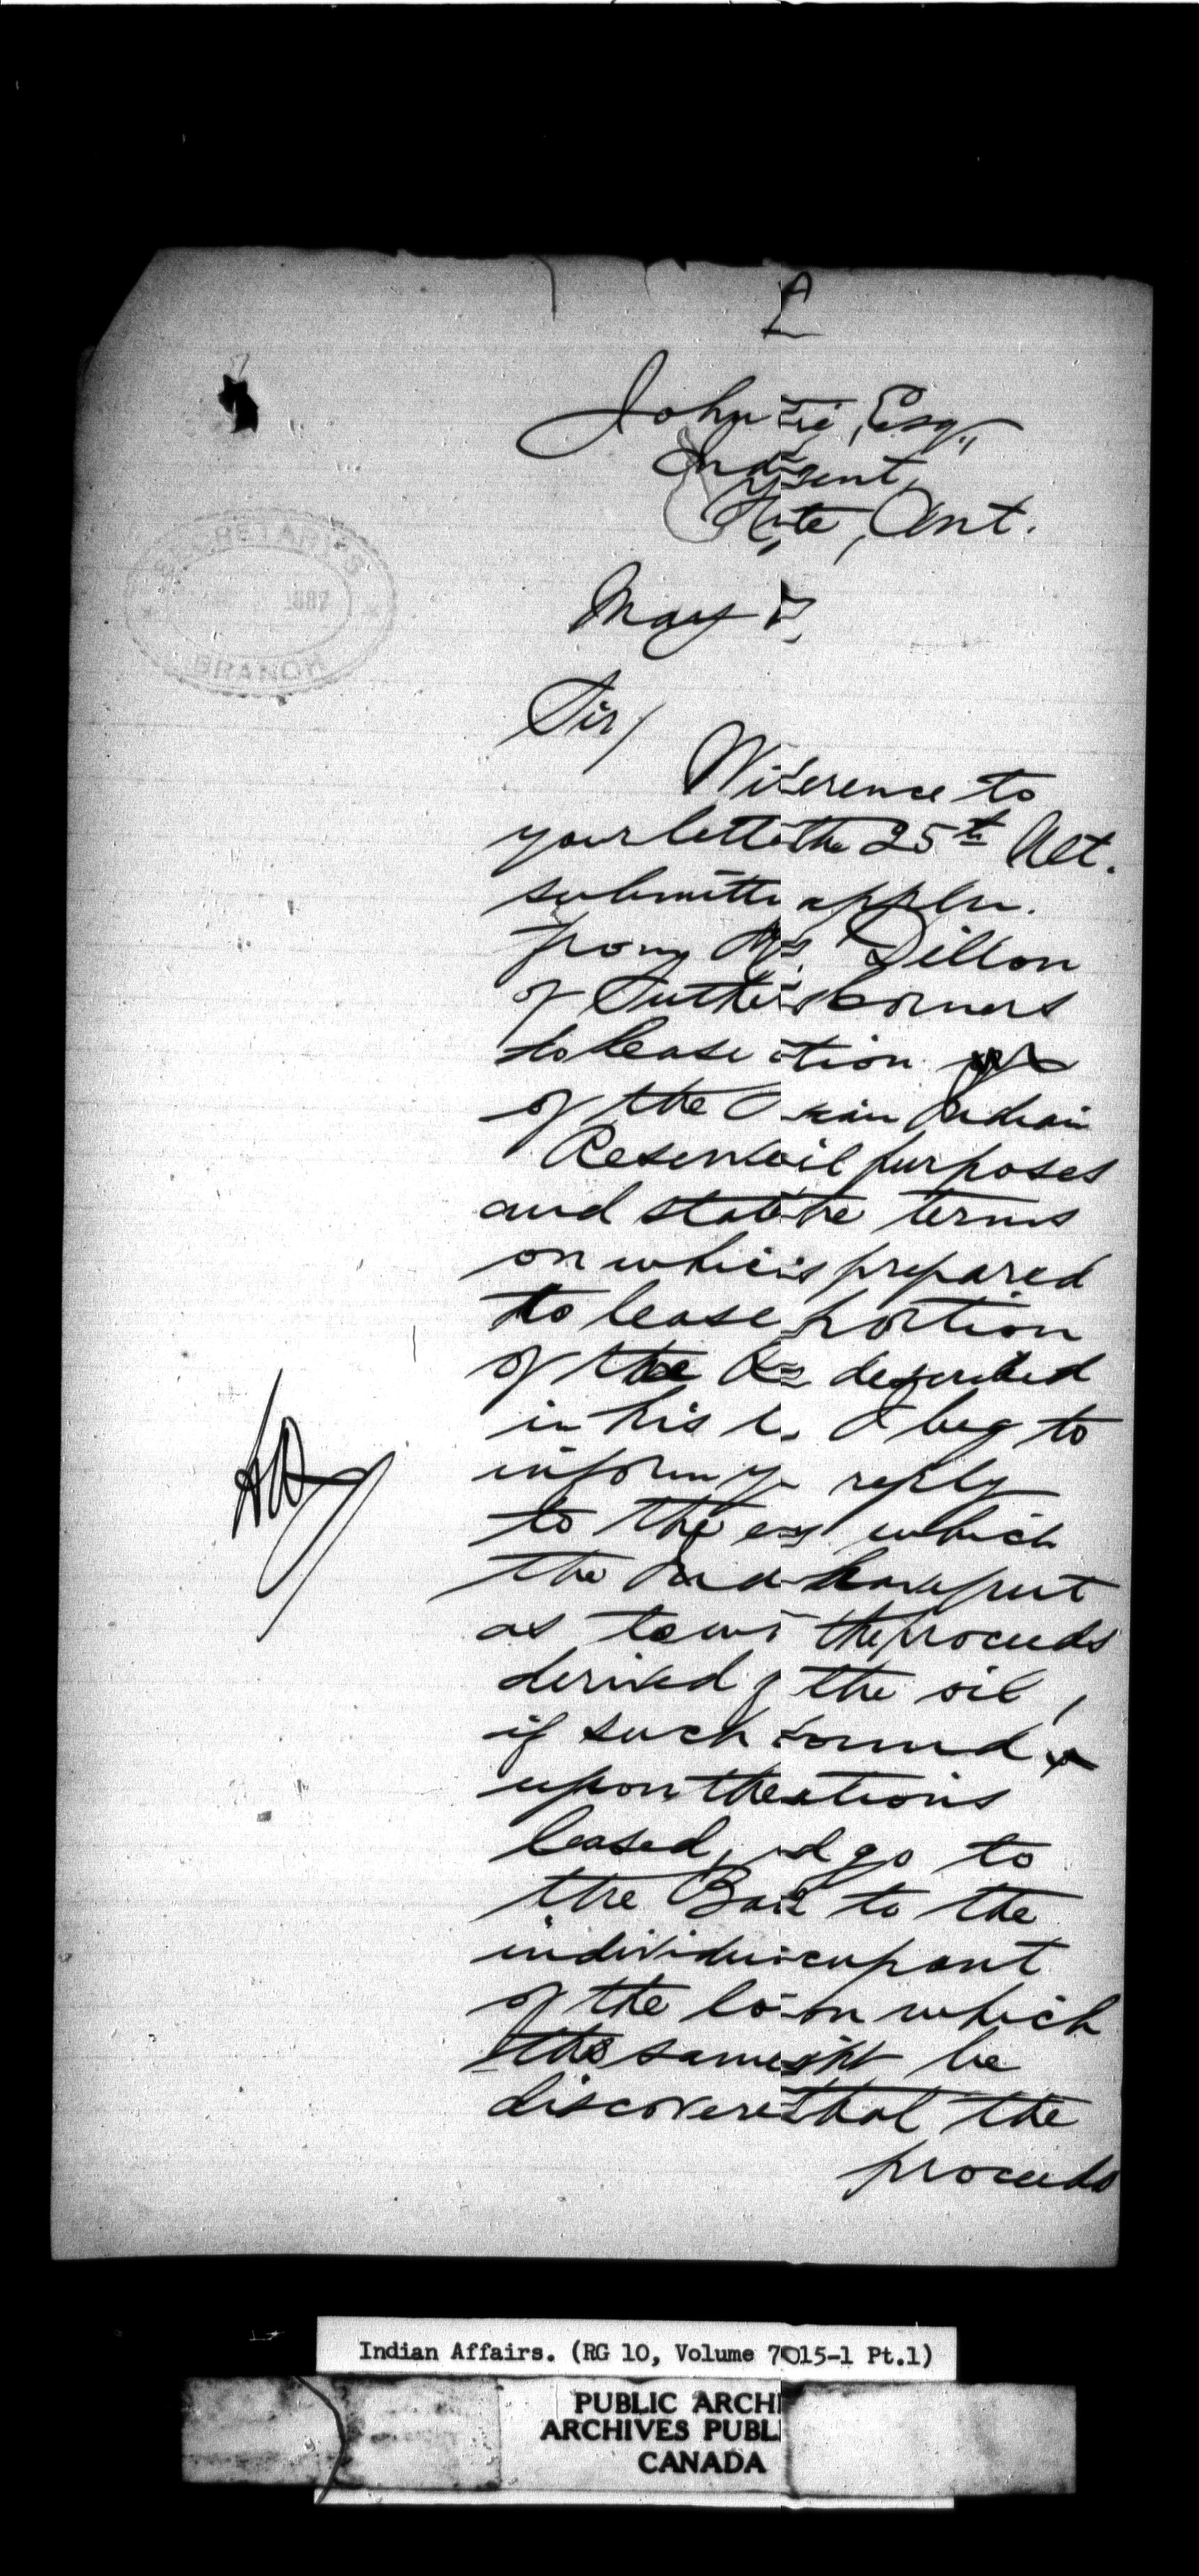 John tie, Esq.,
Ind gent,
te, Ont.
SECRETARY'S
1887
BRANCH
May
Sir/
Wi ference to
your lette the 25th Ult.
submitti appln.
from Dillon
of Suthe s Corners
to lease tion
of the ian Indian
Reserv oil purposes
and stati he terms
on whic is prepared
to lease portion
of the Re described
in his l I beg to
inform y reply
to the en which
the Ind have put
as to w the proceeds
derived f the oil,
if such found
upon the ations
leased, ld go to
the Ban to the
individu cupant
of the lo on which
the same ight be
discovere that the
proceeds
Indian Affairs. (RG 10, Volume 7015-1 Pt.1)
PUBLIC ARCHI
ARCHIVES PUBLI
CANADA